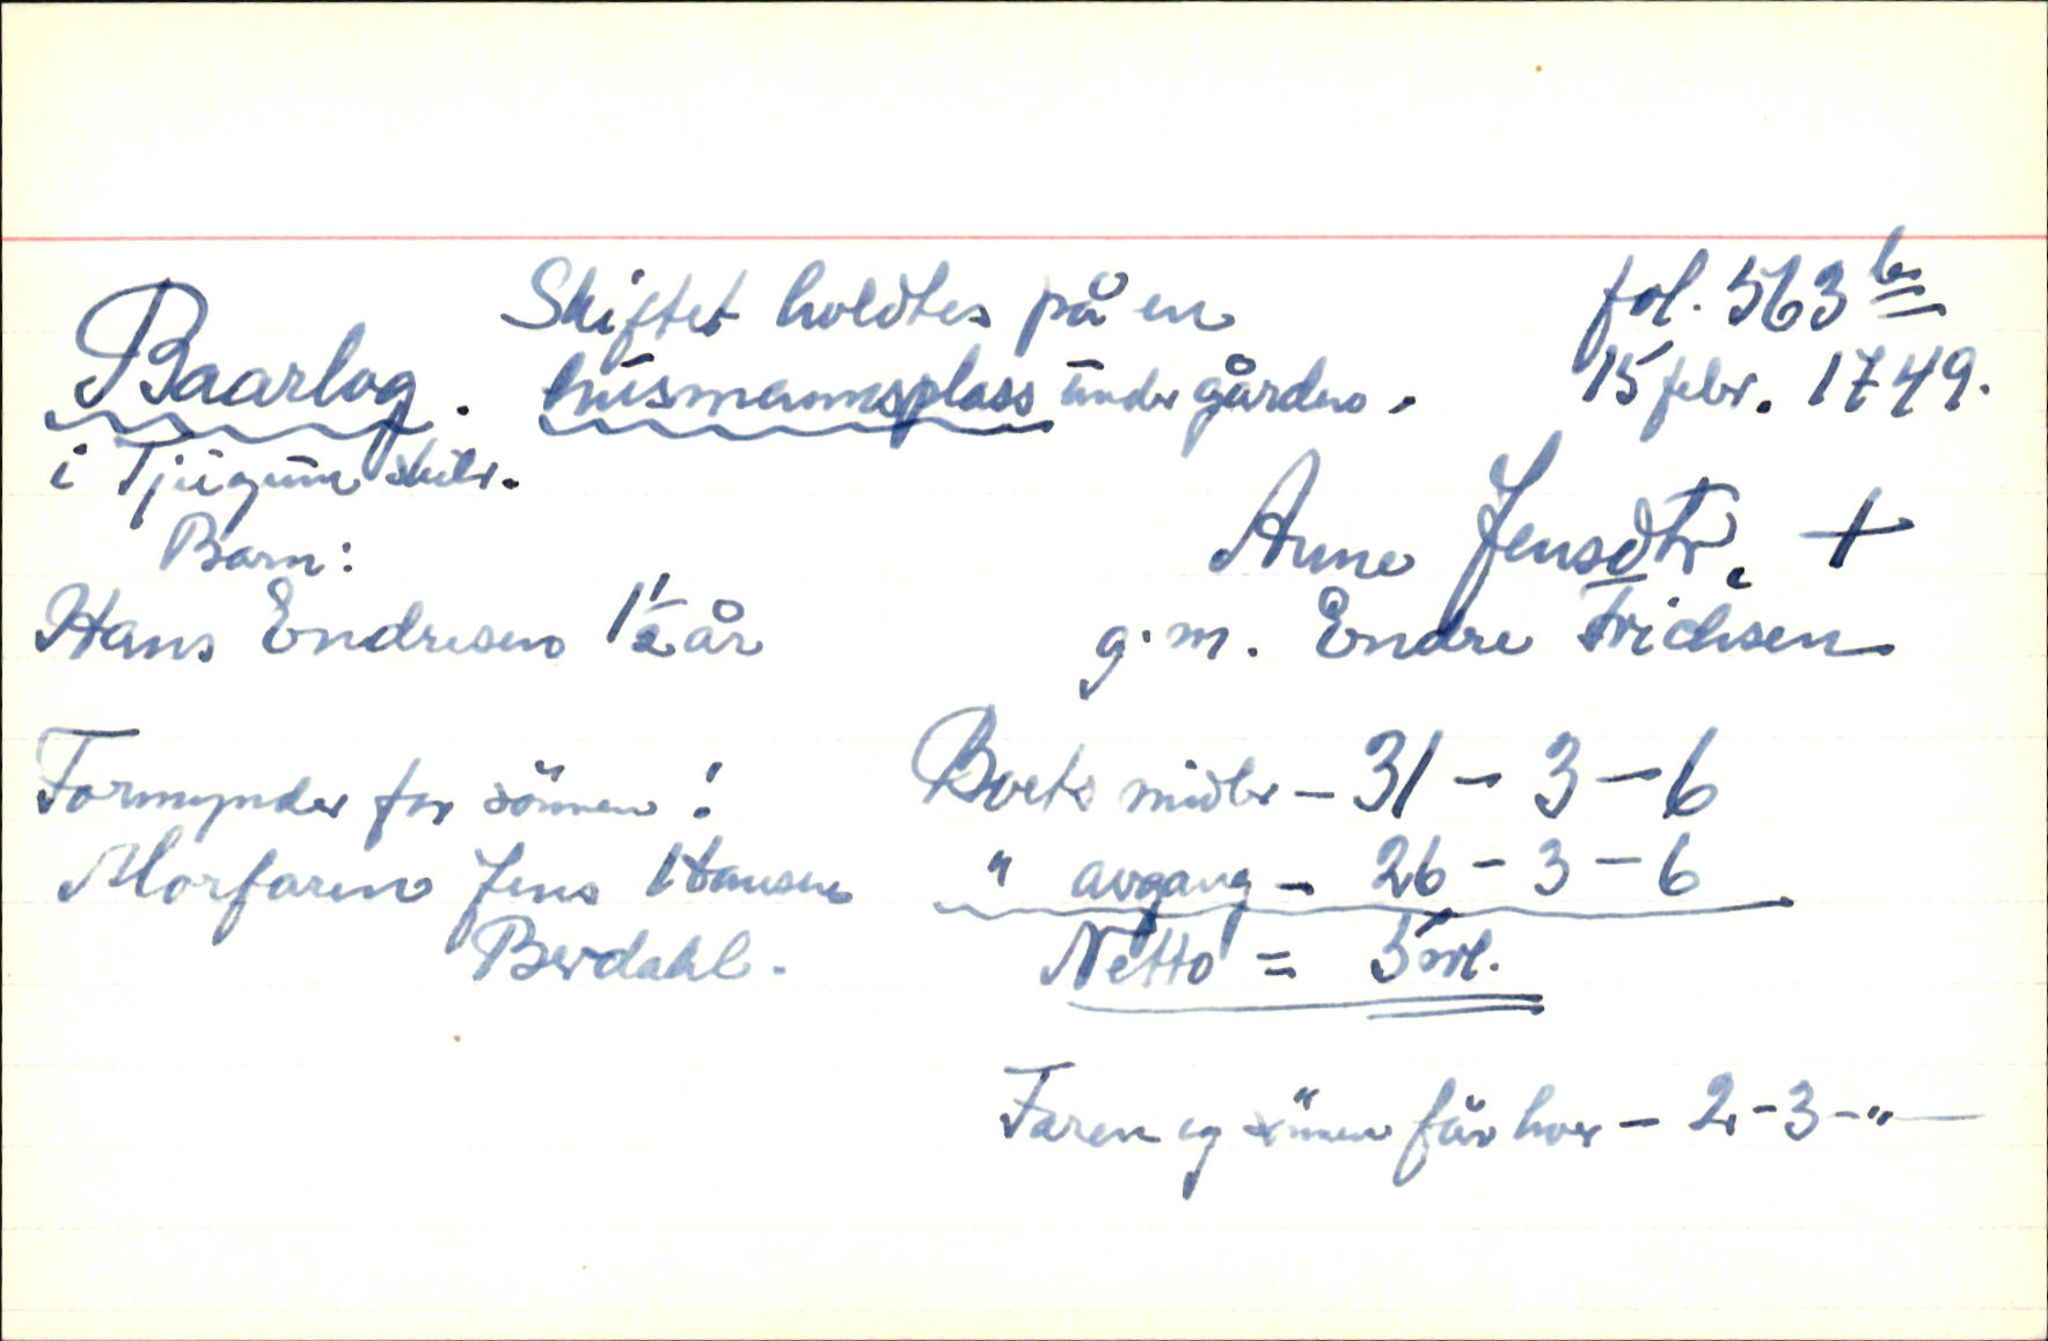 Skiftet holdtes på en
fol. 563 b
Baarlog. husmannsplass under gården.
15 febr. 1749.
i Tjugum skibr.
Barn:
Anne Jensdtr. +
Hans Endresen 1½ år
g.m. Endre Frichsen
Formynder for sönnen:
Boets midler – 31 – 3 – 6
Morfaren Jens Hansen
" avgang – 26 – 3 – 6
Berdahl.
Netto = 5 rdl.
Faren og sönnen får hver – 2 – 3 – "